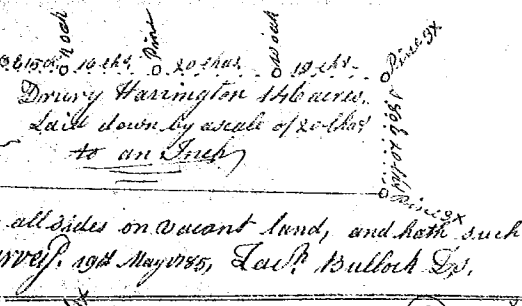 N oak Pine N oak Pine 3X
S 61 5 ch. 16 chs. 20 chas 19 chs.
Drury Harrington 146 acres.
Laid down by a scale of 20 chas
to an Inch
Pine 3X
all sides on vacant land, and hath such
19th May 1785, Zach. Bullock D.S.